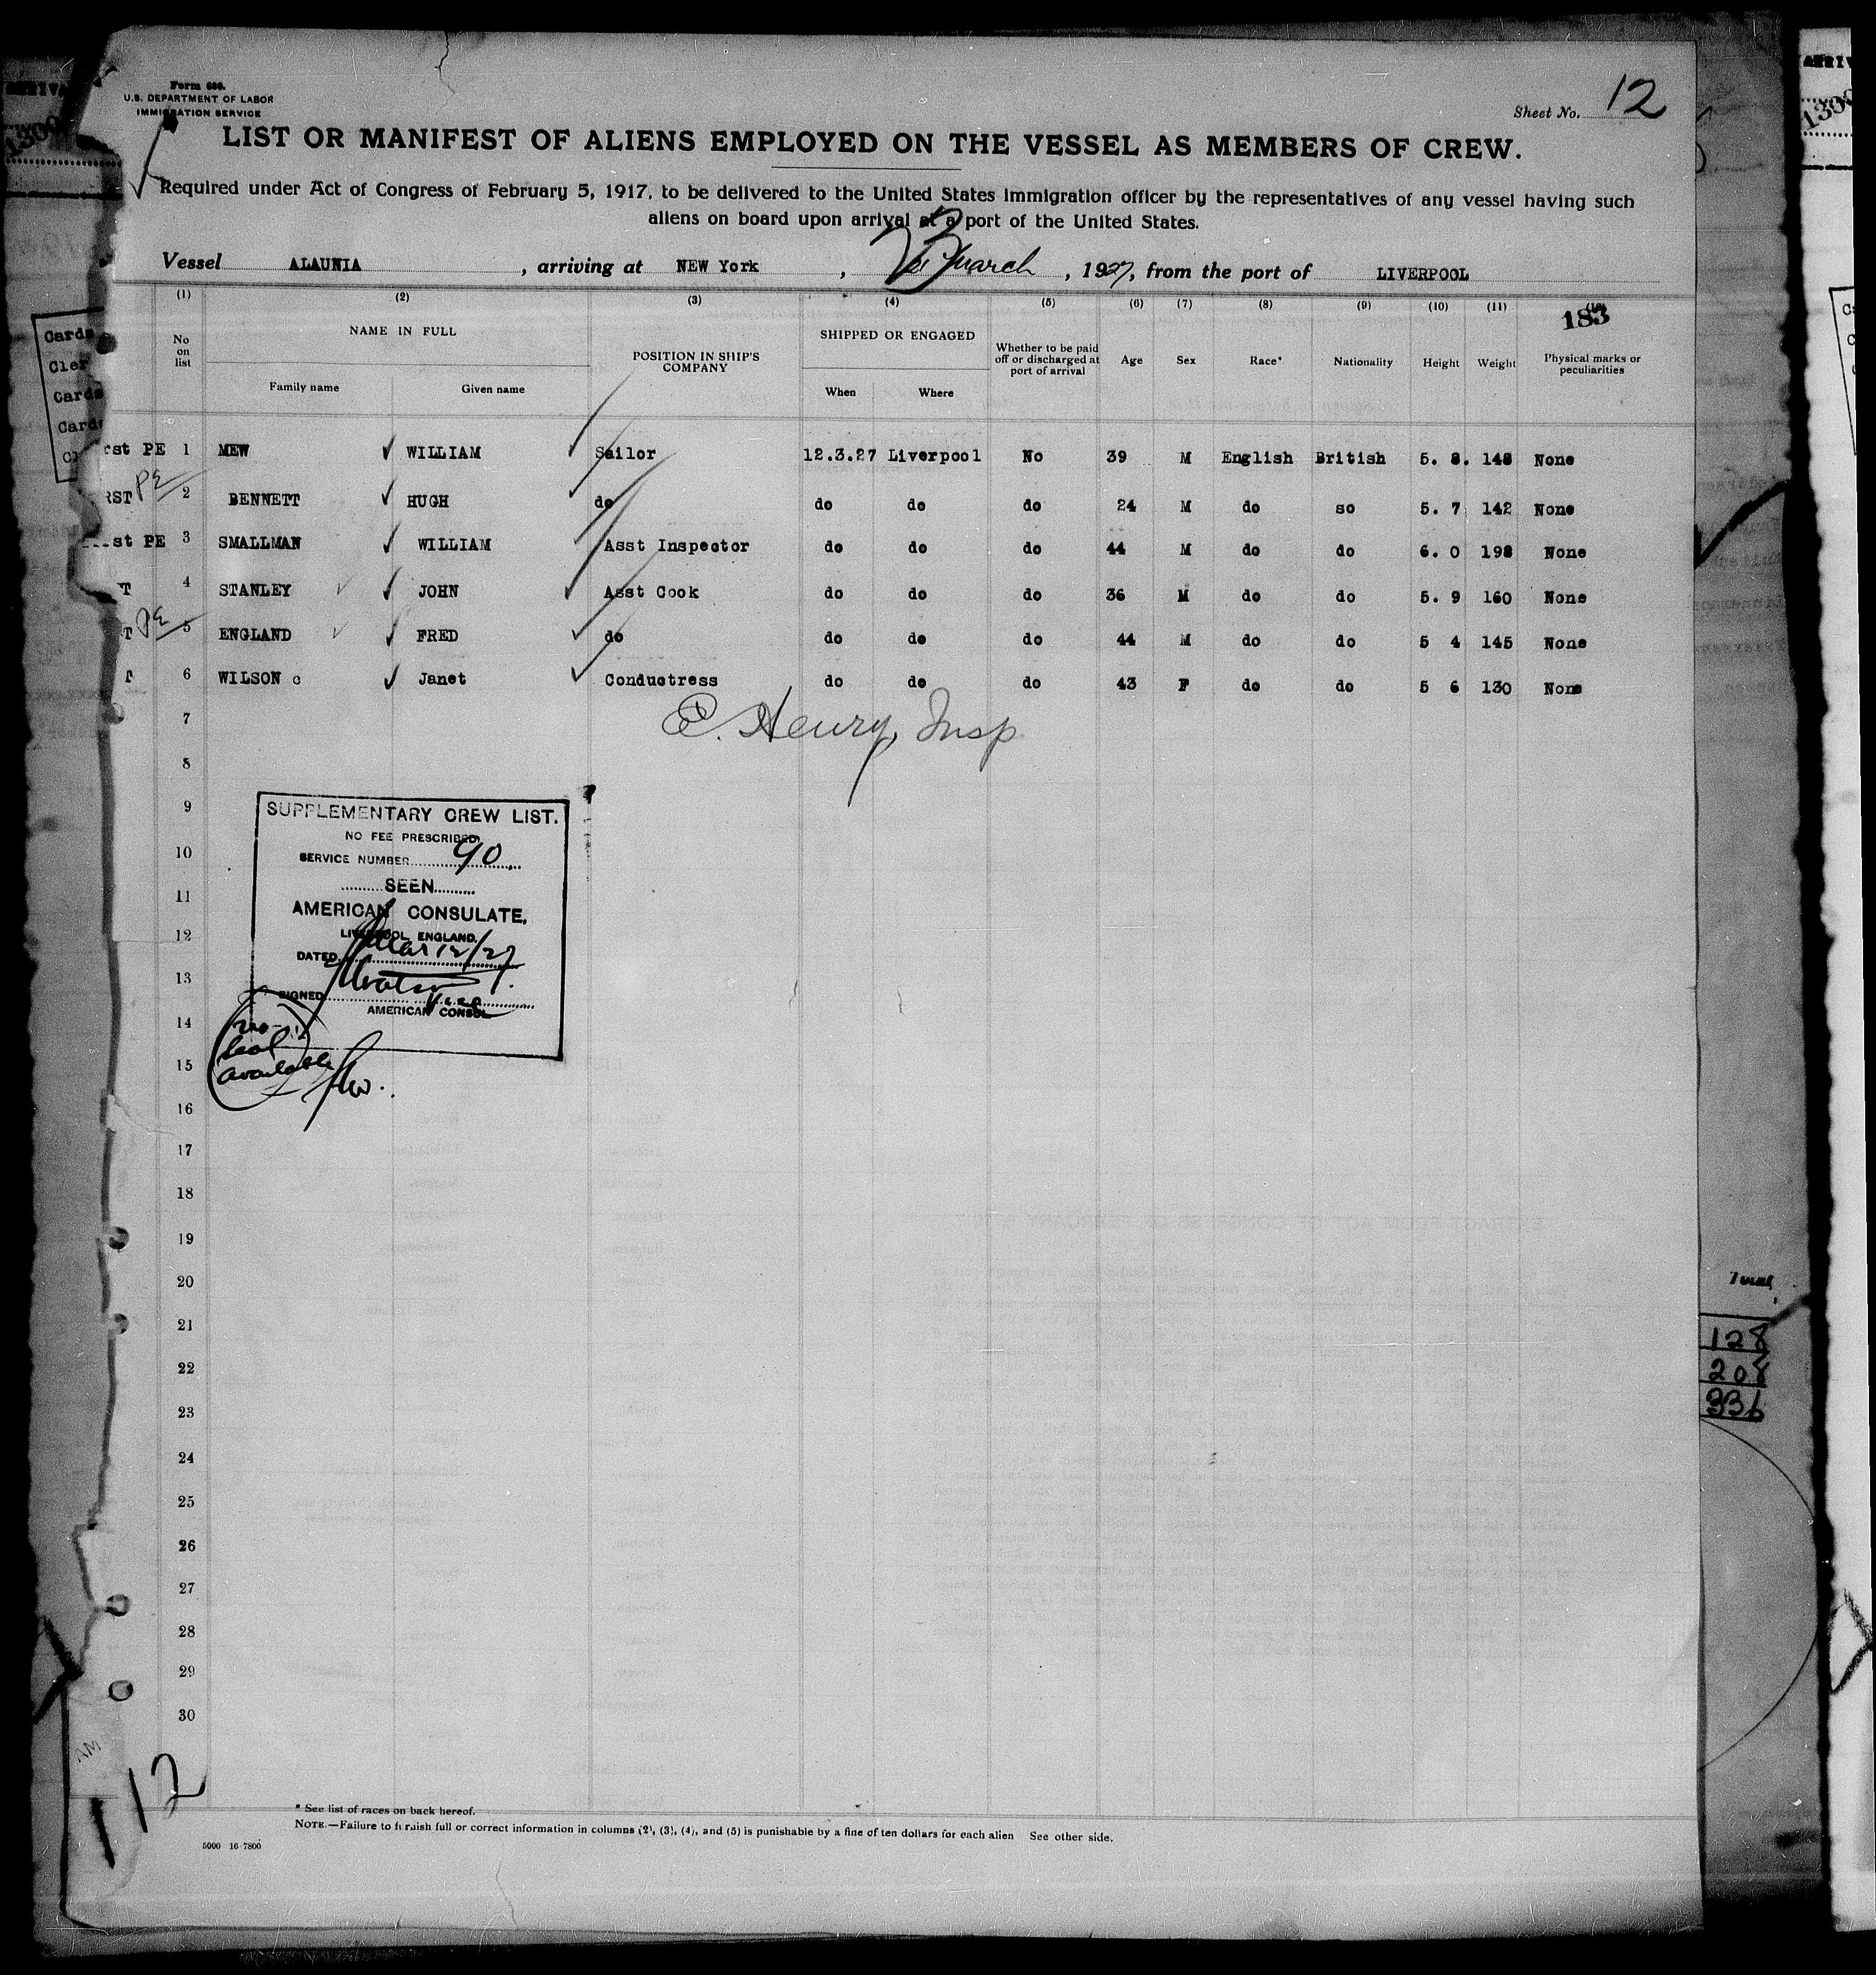 Form 680.
U.S. DEPARTMENT OF LABOR
IMMIGRATION SERVICE
Sheet No. 12
LIST OR MANIFEST OF ALIENS EMPLOYED ON THE VESSEL AS MEMBERS OF CREW.
Required under Act of Congress of February 5, 1917, to be delivered to the United States immigration officer by the representatives of any vessel having such
aliens on board upon arrival at a port of the United States.
Vessel ALAUNIA, arriving at NEW York, March, 1927, from the port of LIVERPOOL
(1) (2) (3) (4) (5) (6) (7) (8) (9) (10) (11)
183
No on list NAME IN FULL Family name Given name POSITION IN SHIP'S COMPANY SHIPPED OR ENGAGED When Where Whether to be paid off or discharged at port of arrival Age Sex Race* Nationality Height Weight Physical marks or peculiarities
rst PE 1 MEW WILLIAM Sailor 12.3.27 Liverpool No 39 M English British 5. 8. 148 None
RST PE 2 BENNETT HUGH do do do do 24 M do so 5. 7 142 None
st PE 3 SMALLMAN WILLIAM Asst Inspector do do do 44 M do do 6. 0 198 None
T 4 STANLEY JOHN Asst Cook do do do 36 M do do 5. 9 160 None
T PE 5 ENGLAND FRED do do do do 44 M do do 5 4 145 None
6 WILSON c Janet Conductress do do do 43 F do do 5 6 130 None
E. Henry, Insp
7
8
9
10
11
12
13
14
15
16
17
18
19
20
21
22
23
24
25
26
27
28
29
30
SUPPLEMENTARY CREW LIST.
NO FEE PRESCRIBED.
SERVICE NUMBER 90
SEEN
AMERICAN CONSULATE,
LIVERPOOL ENGLAND.
DATED Mar 12/27
SIGNED
Vice
AMERICAN CONSUL
no
seal
available
12
* See list of races on back hereof.
NOTE.—Failure to furnish full or correct information in columns (2), (3), (4), and (5) is punishable by a fine of ten dollars for each alien See other side.
5000 16-7800
Total
128
208
336
Cards
Cler
Cards
Card